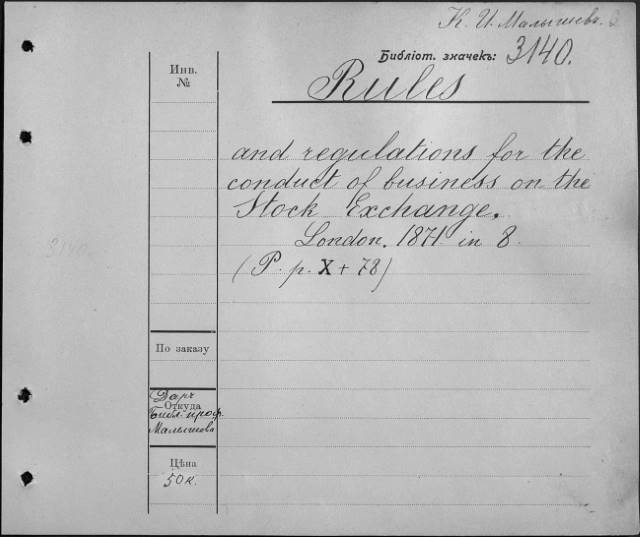 К. И. Малышевъ.
Библіот. значекъ: 3140.
Инв.
№
Rules
and regulations for the
conduct of business on the
Stock Exchange.
London. 1871 in 8.
(P. p. X + 78)
3140.
По заказу
Даръ
Откуда
Библ. проф.
Малышева
Цѣна
50 к.